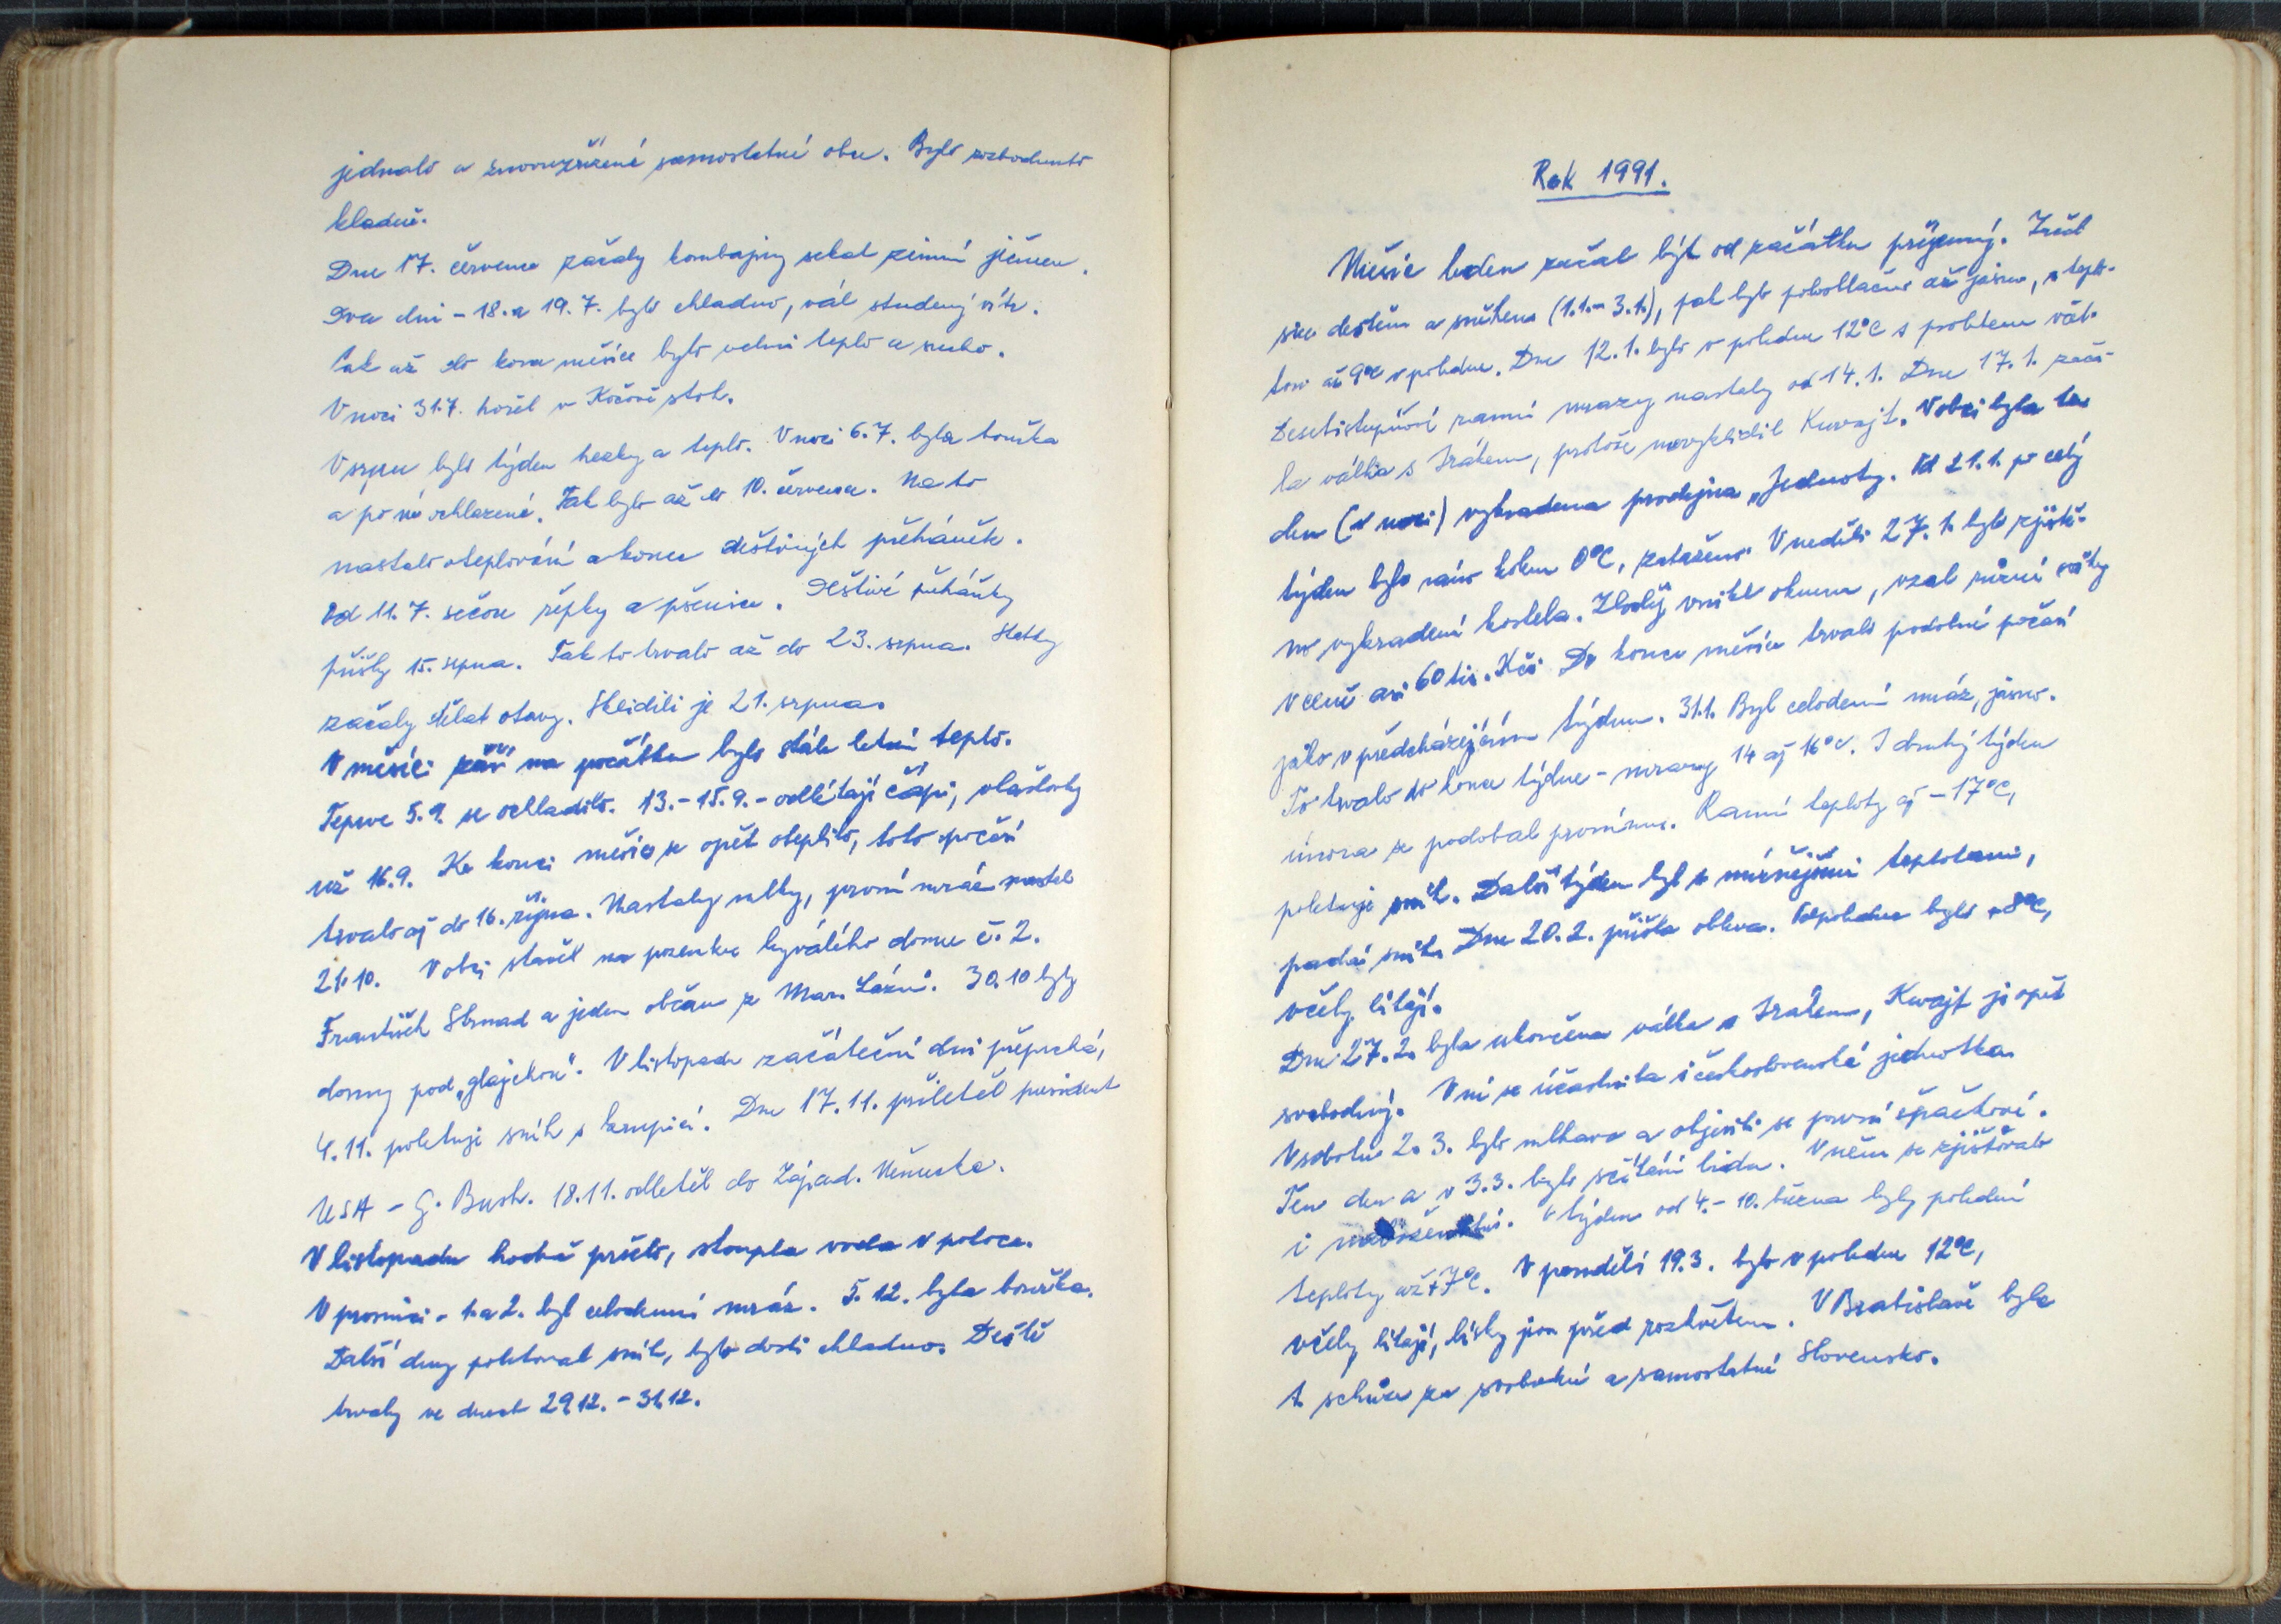 jednalo o znovuzřízené samostatné obce. Bylo rozhodnuto
kladně.
Dne 17. července začaly kombajny sekat zimní ječmen.
Dva dni - 18. a 19. 7. bylo chladno, vál studený vítr.
Pak až do konce měsíce bylo velmi teplo a sucho.
V noci 31.7. hořel v Kočově stoh.
V srpnu byl týden hezky a teplo. V noci 6.7. byla bouřka
a po ní ochlazení. Tak bylo až do 10. července. Na to
nastalo oteplování a konec deštivých přeháněk.
Od 11. 7. sečou řepky a pšenice. Deštivé přeháňky
přišly 15. srpna. Tak to trvalo až do 23. srpna. Statky
začaly dělat otavy. Sklidili je 21. srpna.
V měsíci září na počátku bylo stále letní teplo.
Teprve 5.9. se ochladilo. 13. - 15. 9. - odlétají čápi, vlaštovky
už 16.9. Ke konci měsíce se opět oteplilo, toto počasí
trvalo aj do 16. října. Nastaly mlhy, první mráz nastal
21.10. V obci stavěl na pozemku bývalého domu č. 2.
František Strnad a jeden občan z Mar. Lázní. 30.10 byly
domy pod „glajchou". V listopadu začáteční dni přeprchá,
4.11. poletuje sníh s krupicí. Dne 17.11. přiletěl president
USA - G. Bush. 18.11. odletěl do Západ. Německa.
V listopadu hodně pršelo, stoupla voda v potoce.
V prosinci - 1. a 2. byl celodenní mráz. 5. 12. byla bouřka.
Další dny poletoval sníh, bylo dosti chladno. Deště
trvaly ve dnech 29.12. - 31.12.
Rok 1991.
Měsíc leden začal být od začátku příjemný. Začal
sice deštěm a sněhem (1.1. - 3.1.), pak bylo polooblačno až jasno, s teplo-
tou až 9°C v poledne. Dne 12.1. bylo v poledne 12°C s prudkým vět.
Desetistupňové ranní mrazy nastaly od 14.1. Dne 17.1. zača-
la válka s Irákem, protože nevyklidil Kuvajt. V obci byla ten
den (v noci) vykradena prodejna „Jednoty. Od 21.1. po celý
týden bylo ráno kolem 0°C, zataženo. V neděli 27.1. bylo zjiště-
no vykradení kostela. Zloděj vnikl oknem, vzal různé věci
v ceně asi 60 tis. Kčs. Do konce měsíce trvalo podobné počasí
jako v předcházejícím týdnu. 31.1. Byl celodenní mráz, jasno.
To trvalo do konce týdne - mrazy 14 aj 16°C. I druhý týden
února se podobal prvnímu. Ranní teploty aj -17°C,
poletuje sníh. Další týden byl s mírnějšími teplotami,
padá sníh. Dne 20.2. přišla obleva. Odpoledne bylo +8°C,
včely lítají.
Dne 27.2. byla ukončena válka s Irákem, Kuvajt je opět
svobodný. V ní se účastnila i československá jednotka.
V sobotu 2. 3. bylo mlhavo a objevili se první špačkové.
Ten den a v 3.3. bylo sčítání lidu. V něm se zjišťovalo
i náboženství. V týdnu od 4. - 10. března byly polední
teploty až +7°C. V pondělí 19.3. bylo v poledne 12°C,
včely lítají, lísky jsou před rozkvětem. V Bratislavě byla
1. schůze za svobodné a samostatné Slovensko.